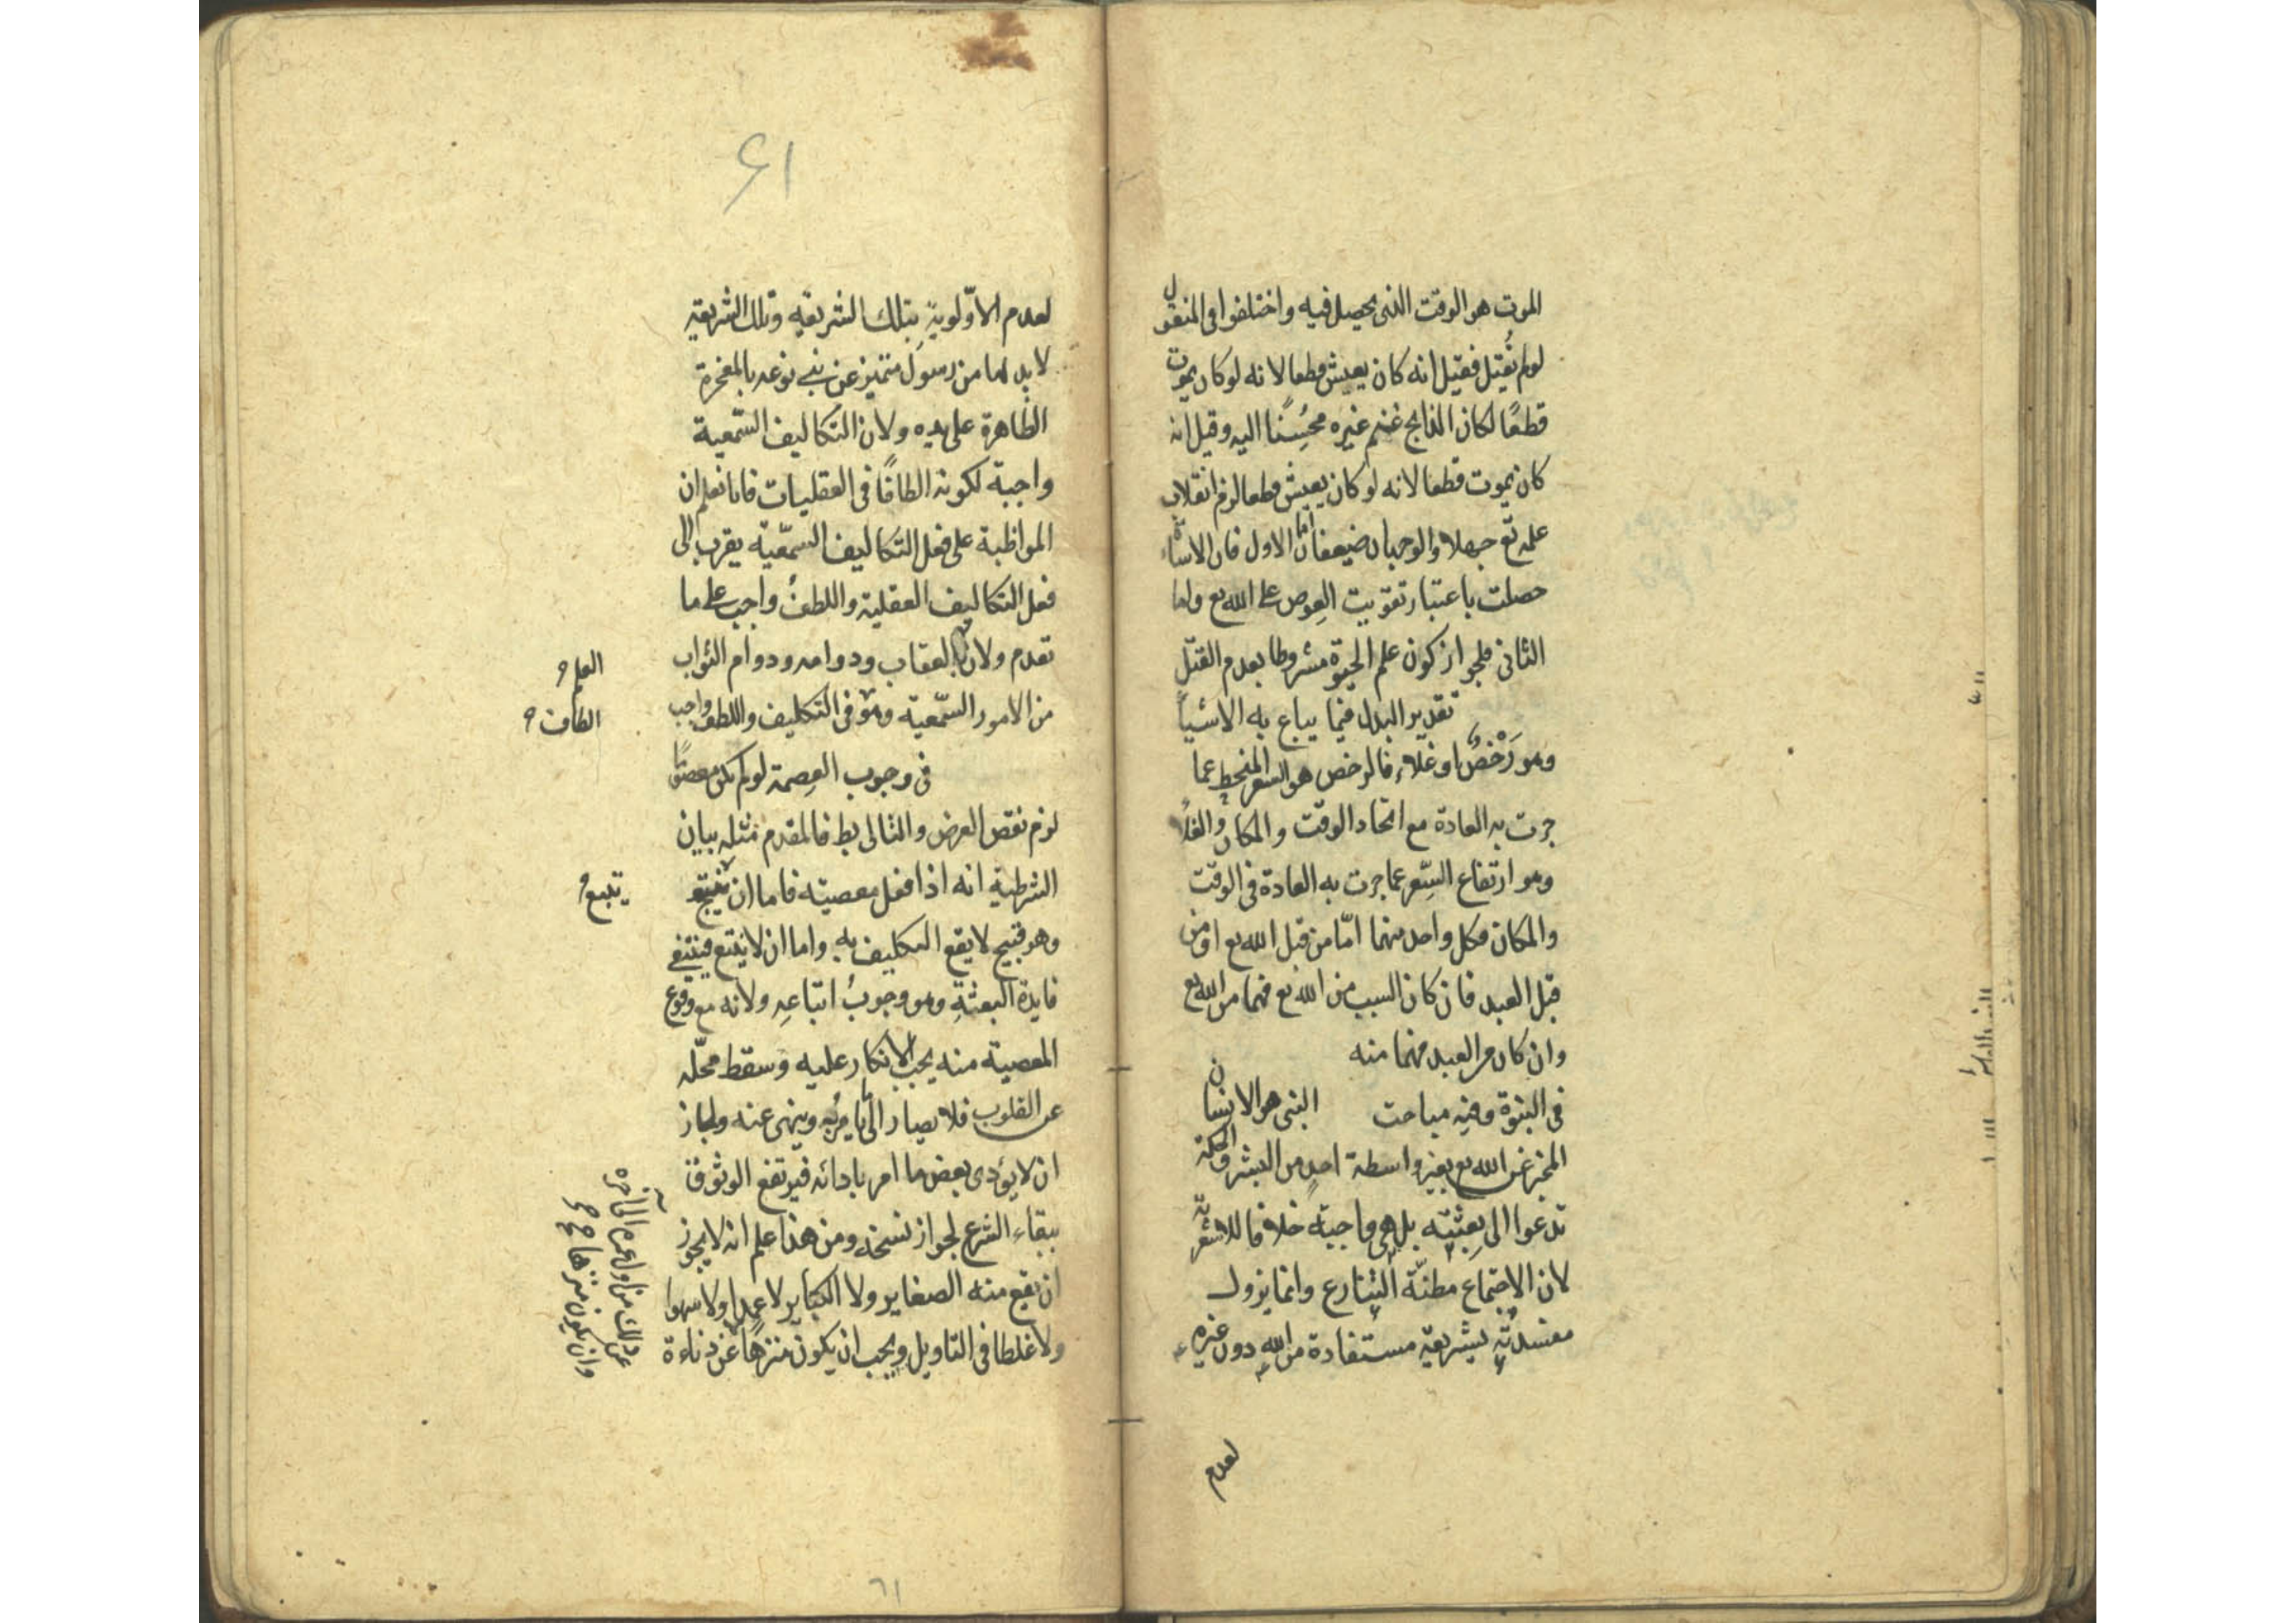 الموت هو الوقت الذى يحصل فيه واختلفوا فى المقتول
لو لم يُقتل فقيل انه كان يعيش قطعا لانه لو كان يموت
قطعًا لكان الذابح غنم غيره محسِنًا اليه وقيل انه
كان يموت قطعا لانه لو كان يعيش قطعا لزم انقلاب
علمه تع جهلا والوجهان ضعيفان اما الاول فان الاساءة
حصلت باعتبار تفويت العوض على الله تع واما
الثانى فلجواز كون علم الحيوة مشروطا بعدم القتل
تقدير البدل فيما يباع به الاشياء
وهو رَخْصٌ او غلاء فالرخص هو السعر المنحط عما
جرت به العادة مع اتحاد الوقت والمكان والغلاء
وهو ارتفاع السِّعر عما جرت به العادة فى الوقت
والمكان فكل واحد منهما امّا من قبل الله تع او من
قبل العبد فان كان السبب من الله تع فهما من الله تع
وان كان من العبد فهما منه
فى النبوة وفيه مباحث النبى هو الانسان
المخبر عن الله تع بغير واسطة احدٍ من البشر والحكمة
تدعوا الى بعثته بل هى واجبة خلافا للاشعرية
لان الاجتماع مظنّة التنازع وانما يزول
مفسدته بشريعة مستفادة من الله دون غيره
لعدم
۶۱
لعدم الاَولوية بتلك الشريعة وتلك الشريعة
لا بد لها من رسول متميز عن بنى نوعه بالمعجزة
الظاهرة على يده ولان التكاليف السّمعية
واجبة لكونه الطافًا فى العقليات فانا نعلم ان
المواظبة على فعل التكاليف السمّعية يقرب الى
فعل التكاليف العقلية واللطفُ واجب على ما
تقدم ولان بالعقاب ودوامه ودوام الثواب
العلم
من الامور السّمعية وهو فى التكليف واللطف واجب
الطاف
فى وجوب العِصمة لو لم يكن معصومًا
لزم نقص الغرض والتالى بط فالمقدم مثله بيان
الشرطية انه اذا فعل معصية فاما ان يتبع
يتبع
وهو قبيح لا يقع التكليف به واما ان لا يتبع فينتفى
فايدة البعثةِ وهو وجوبُ اتباعِه ولانه مع وقوع
المعصية منه يجب الانكار عليه وسقط محلّه
عن القلوب فلا يصار الى ما يامر به وينهى عنه ولجاز
ان لا يؤدى بعض ما امر بادائه فيرتفع الوثوق
ببقاء الشرع لجواز نسخه ومن هذا علم انه لا يجوز
ان يقع منه الصغاير ولا الكباير لا عمدا ولا سهوا
ولا غلطا فى التاويل ويجب ان يكون منزهًا عن دناءة
ذلك من اول عمره الى آخره
وان يكون منزها
٦١